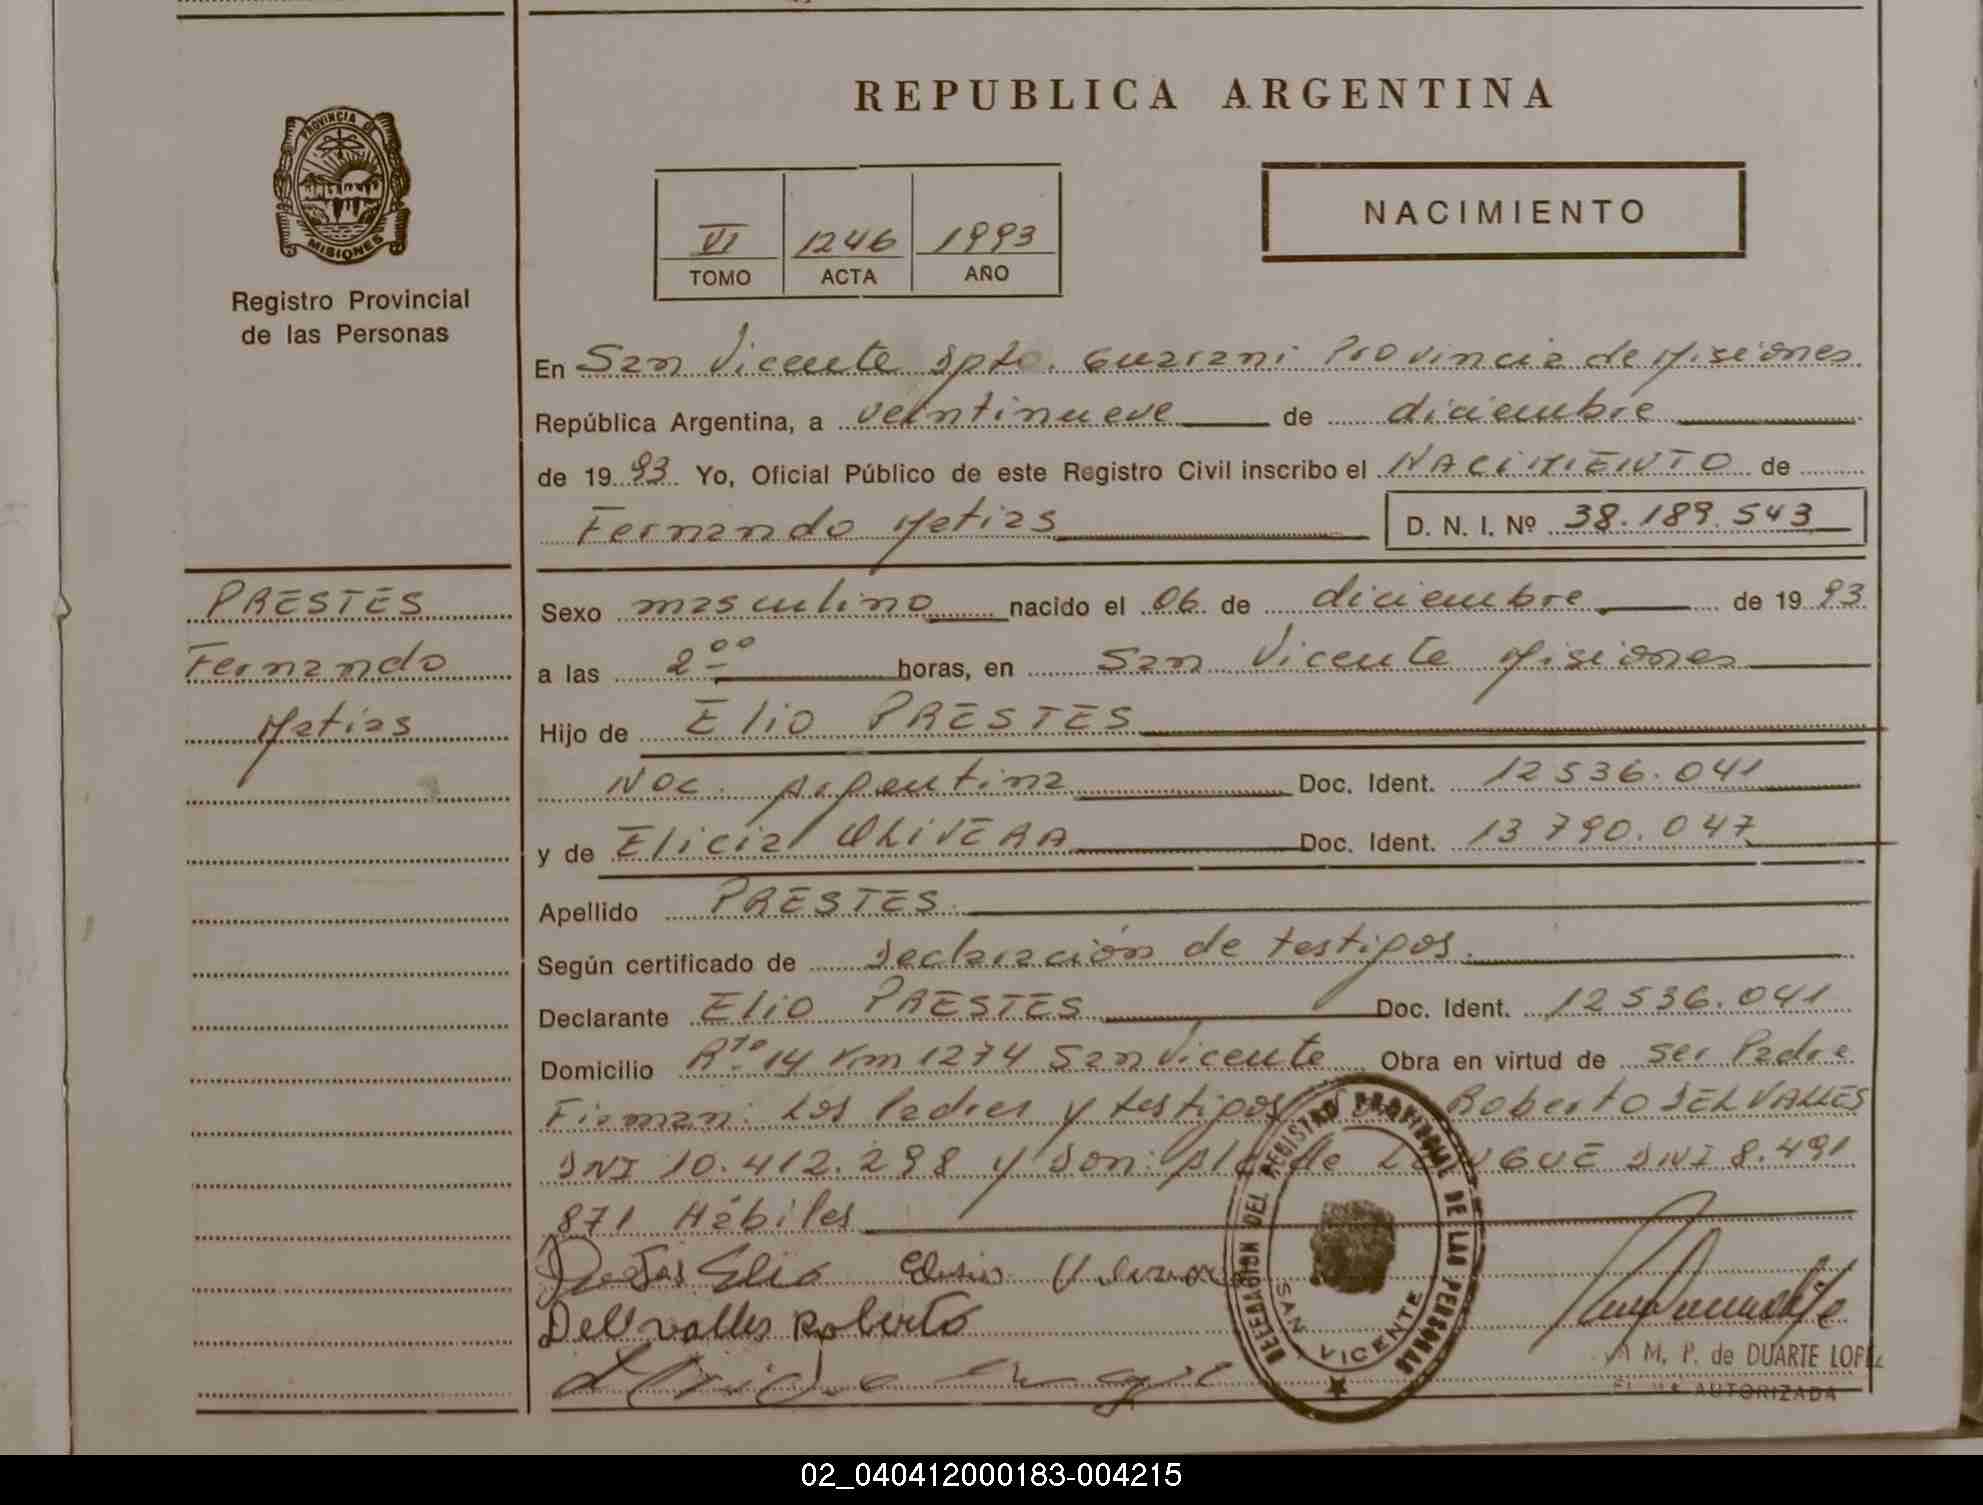 REPUBLICA ARGENTINA
PROVINCIA DE
MISIONES
Registro Provincial
de las Personas
VI 1246 1993
TOMO ACTA AÑO
NACIMIENTO
En San Vicente Dpto. Guarani Provincia de Misiones.
República Argentina, a veintinueve de diciembre
de 1993 Yo, Oficial Público de este Registro Civil inscribo el NACIMIENTO de
Fernando Matias D. N. I. Nº 38.189.543
PRESTES
Fernando
Matias
Sexo masculino nacido el 06 de diciembre de 1993
a las 2 00 horas, en San Vicente Misiones
Hijo de Elio PRESTES
Nac. Argentina Doc. Ident. 12536.041
y de Elicia OLIVERA Doc. Ident. 13790.047
Apellido PRESTES
Según certificado de Declaración de testigos.
Declarante Elio PRESTES Doc. Ident. 12536.041
Domicilio Rta 14 Km 1274 San Vicente Obra en virtud de ser Padre
Firman: Los Padres y testigos Roberto DELVALLES
DNI 10.412.298 y Don: de DNI 8.491
871 Hábiles
Elio
Dellvalles Roberto
DELEGACION DEL REGISTRO PROVINCIAL DE LAS PERSONAS
SAN VICENTE
M. P. de DUARTE LOPEZ
AUTORIZADA
02_040412000183-004215